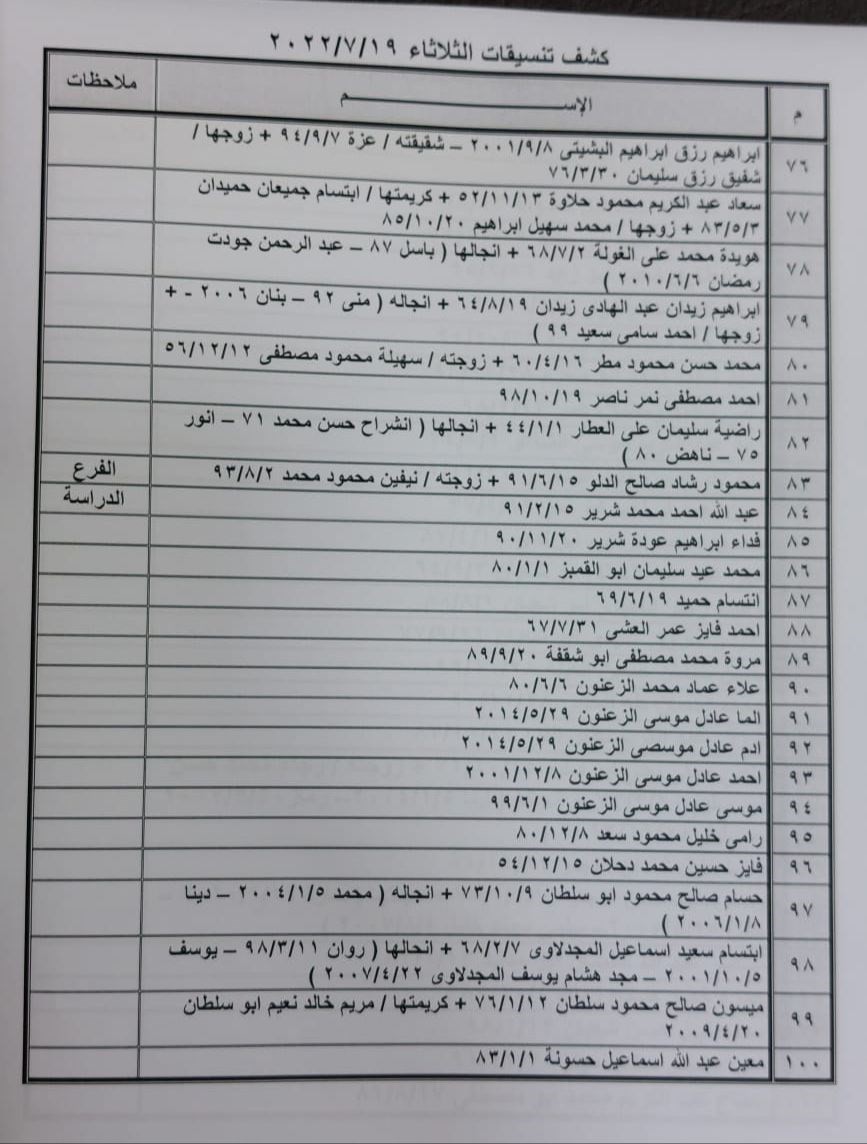 كشف تنسيقات الثلاثاء ٢٠٢٢/٧/١٩
م الإســـــــــم ملاحظات
٧٦ ابراهيم رزق ابراهيم البشيتى ٢٠٠١/٩/٨ – شقيقته / عزة ٩٤/٩/٧ + زوجها /
شفيق رزق سليمان ٧٦/٣/٣٠
٧٧ سعاد عبد الكريم محمود حلاوة ٥٢/١١/١٣ + كريمتها / ابتسام جميعان حميدان
٨٣/٥/٣ + زوجها / محمد سهيل ابراهيم ٨٥/١٠/٢٠
٧٨ هويدة محمد على الغولة ٦٨/٧/٢ + انجالها ( باسل ٨٧ – عبد الرحمن جودت
رمضان ٢٠١٠/٦/٦ )
٧٩ ابراهيم زيدان عبد الهادى زيدان ٦٤/٨/١٩ + انجاله ( منى ٩٢ – بنان ٢٠٠٦ - +
زوجها / احمد سامى سعيد ٩٩ )
٨٠ محمد حسن محمود مطر ٦٠/٤/١٦ + زوجته / سهيلة محمود مصطفى ٥٦/١٢/١٢
٨١ احمد مصطفى نمر ناصر ٩٨/١٠/١٩
٨٢ راضية سليمان على العطار ٤٤/١/١ + انجالها ( انشراح حسن محمد ٧١ – انور
٧٥ – ناهض ٨٠ )
٨٣ محمود رشاد صالح الدلو ٩١/٦/١٥ + زوجته / نيفين محمود محمد ٩٣/٨/٢ الفرع
٨٤ عبد الله احمد محمد شرير ٩١/٢/١٥ الدراسة
٨٥ فداء ابراهيم عودة شرير ٩٠/١١/٢٠
٨٦ محمد عيد سليمان ابو القمبز ٨٠/١/١
٨٧ انتسام حميد ٦٩/٦/١٩
٨٨ احمد فايز عمر العشى ٦٧/٧/٣١
٨٩ مروة محمد مصطفى ابو شقفة ٨٩/٩/٢٠
٩٠ علاء عماد محمد الزعنون ٨٠/٦/٦
٩١ الما عادل موسى الزعنون ٢٠١٤/٥/٢٩
٩٢ ادم عادل موسصى الزعنون ٢٠١٤/٥/٢٩
٩٣ احمد عادل موسى الزعنون ٢٠٠١/١٢/٨
٩٤ موسى عادل موسى الزعنون ٩٩/٦/١
٩٥ رامى خليل محمود سعد ٨٠/١٢/٨
٩٦ فايز حسين محمد دحلان ٥٤/١٢/١٥
٩٧ حسام صالح محمود ابو سلطان ٧٣/١٠/٩ + انجاله ( محمد ٢٠٠٤/١/٥ – دينا
٢٠٠٦/١/٨ )
٩٨ ابتسام سعيد اسماعيل المجدلاوى ٦٨/٢/٧ + انحالها ( روان ٩٨/٣/١١ – يوسف
٢٠٠١/١٠/٥ – مجد هشام يوسف المجدلاوى ٢٠٠٧/٤/٢٢ )
٩٩ ميسون صالح محمود سلطان ٧٦/١/١٢ + كريمتها / مريم خالد نعيم ابو سلطان
٢٠٠٩/٤/٢٠
١٠٠ معين عبد الله اسماعيل حسونة ٨٣/١/١